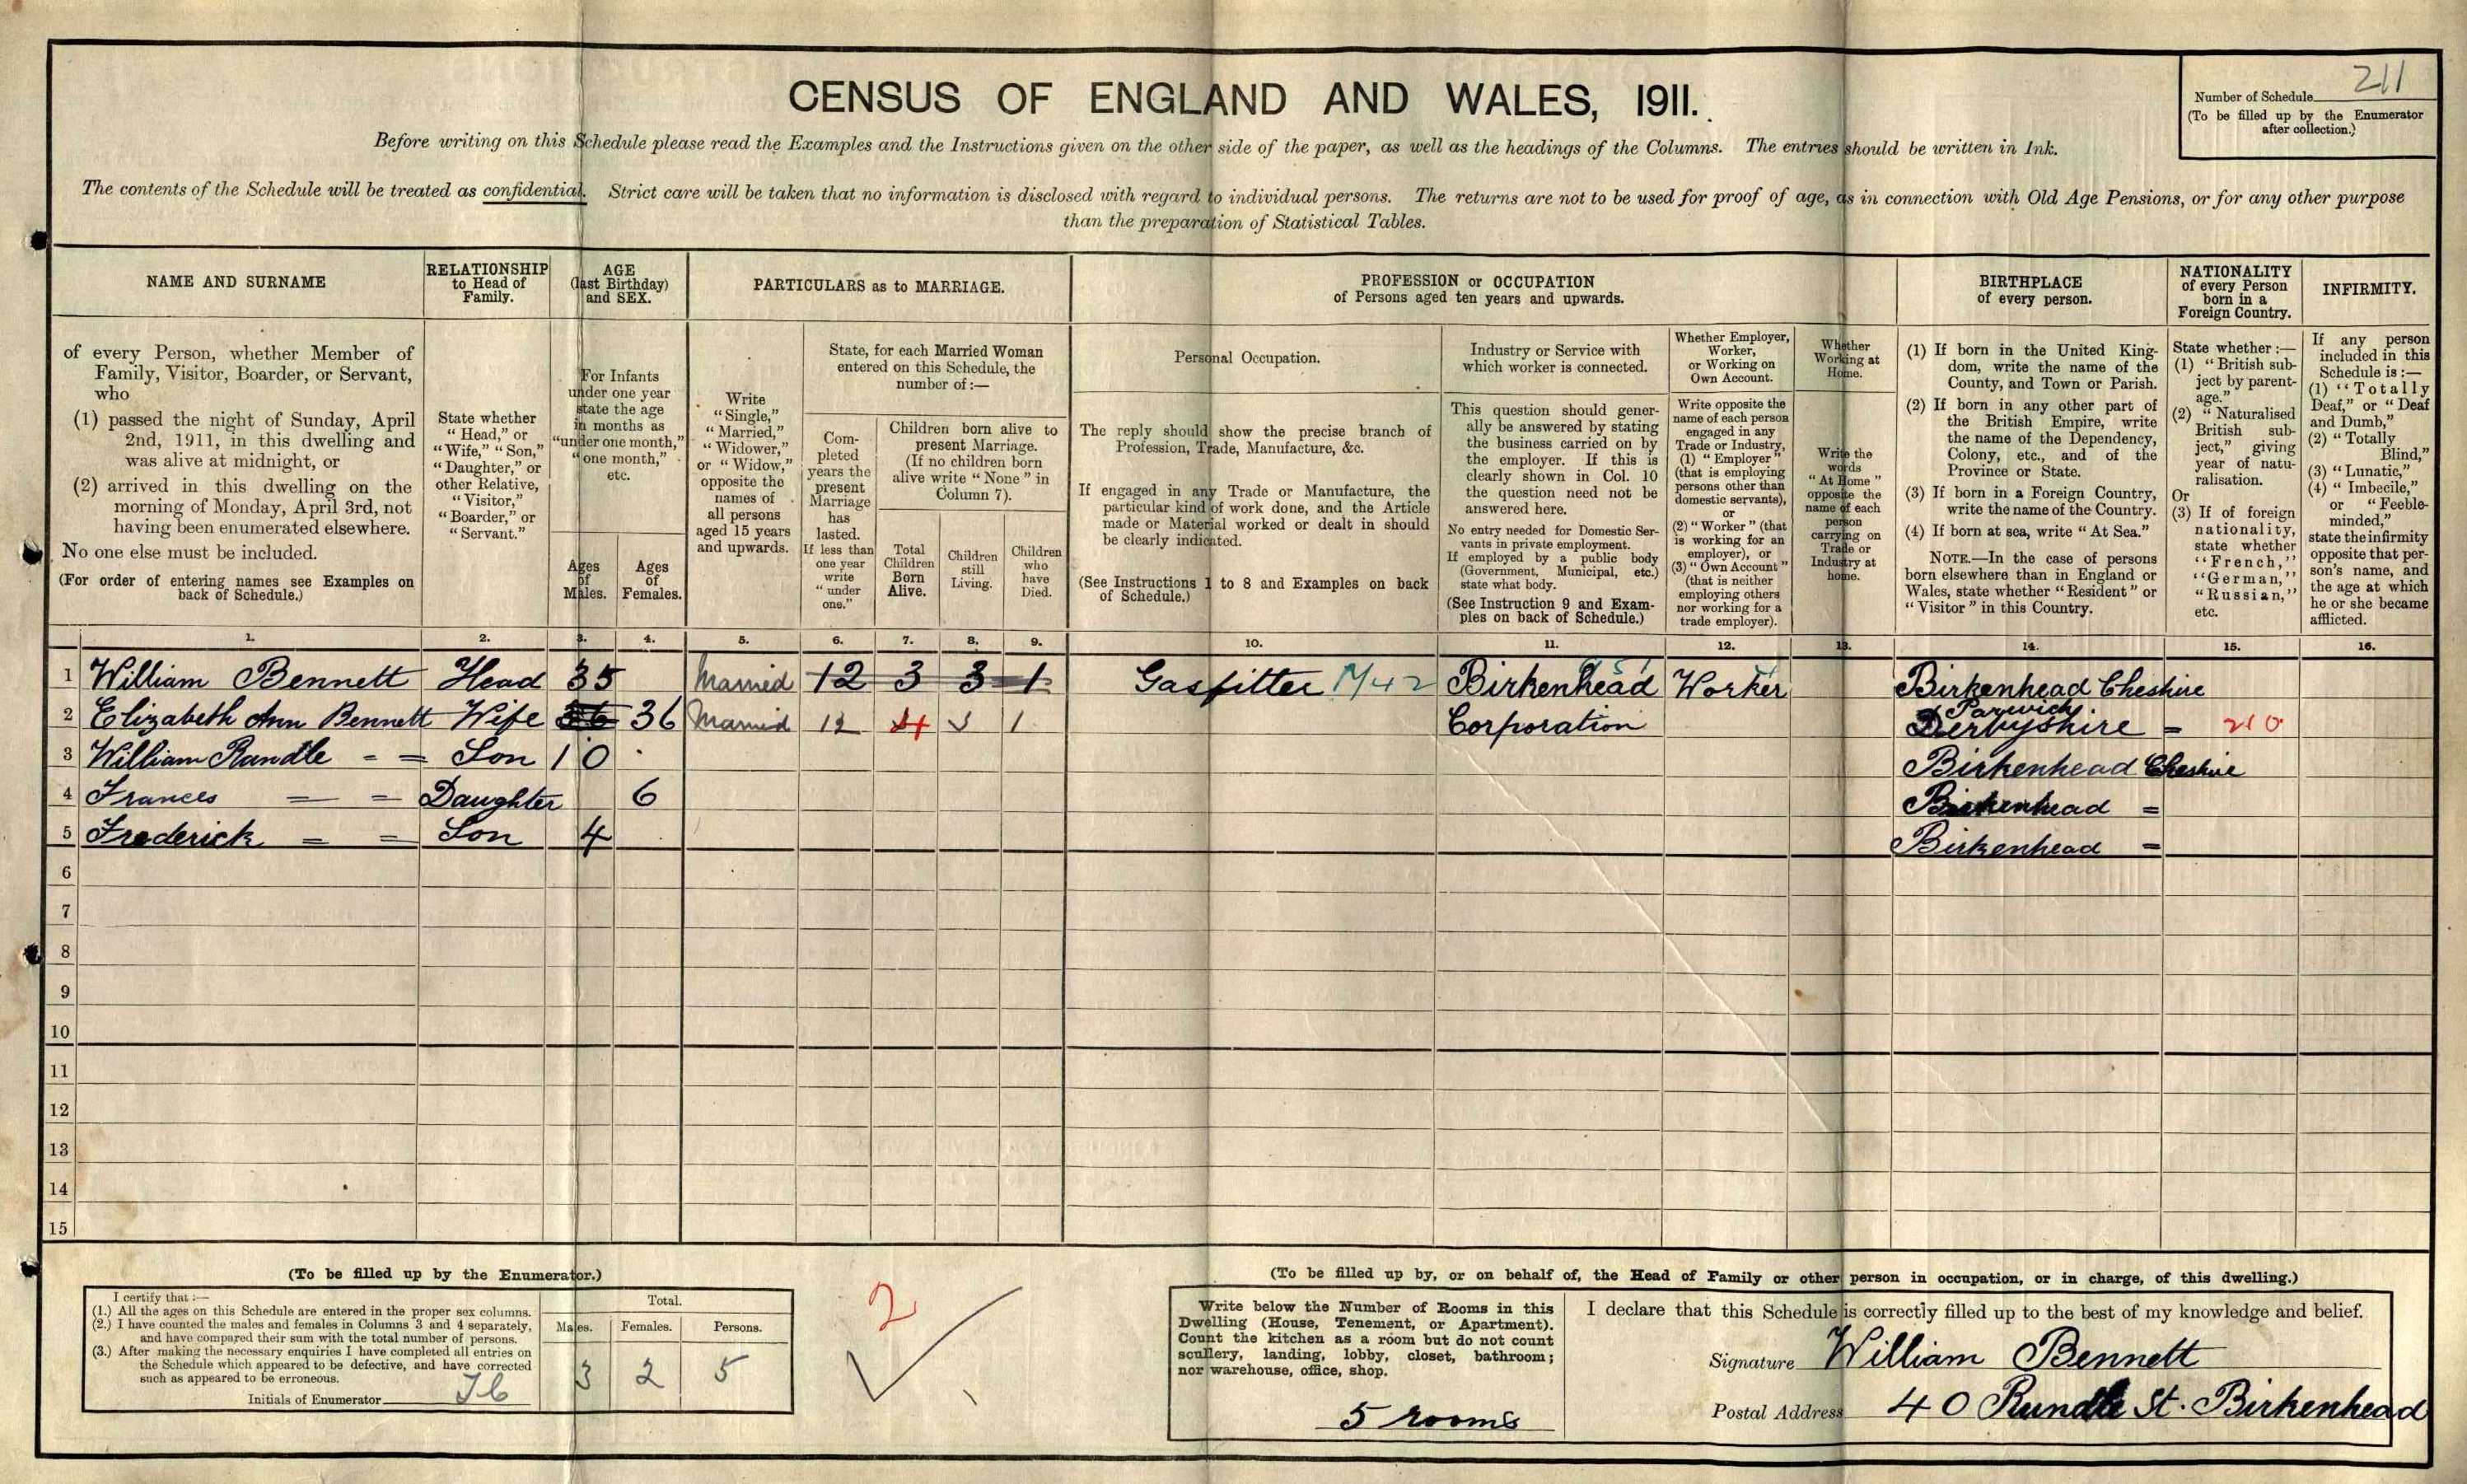 CENSUS OF ENGLAND AND WALES, 1911.
Number of Schedule 211
(To be filled up by the Enumerator
after collection.)
Before writing on this Schedule please read the Examples and the Instructions given on the other side of the paper, as well as the headings of the Columns. The entries should be written in Ink.
The contents of the Schedule will be treated as confidential. Strict care will be taken that no information is disclosed with regard to individual persons. The returns are not to be used for proof of age, as in connection with Old Age Pensions, or for any other purpose
than the preparation of Statistical Tables.
NAME AND SURNAME
of every Person, whether Member of
Family, Visitor, Boarder, or Servant,
who
(1) passed the night of Sunday, April
2nd, 1911, in this dwelling and
was alive at midnight, or
(2) arrived in this dwelling on the
morning of Monday, April 3rd, not
having been enumerated elsewhere.
No one else must be included.
(For order of entering names see Examples on
back of Schedule.)
RELATIONSHIP
to Head of
Family.
State whether
"Head," or
"Wife," "Son,"
"Daughter," or
other Relative,
"Visitor,"
"Boarder," or
"Servant."
AGE
(last Birthday)
and SEX.
For Infants
under one year
state the age
in months as
"under one month,"
"one month,"
etc.
Ages
of
Males.
Ages
of
Females.
PARTICULARS as to MARRIAGE.
Write
"Single,"
"Married,"
"Widower,"
or "Widow,"
opposite the
names of
all persons
aged 15 years
and upwards.
State, for each Married Woman
entered on this Schedule, the
number of:—
Com-
pleted
years the
present
Marriage
has
lasted.
If less than
one year
write
"under
one."
Children born alive to
present Marriage.
(If no children born
alive write "None" in
Column 7).
Total
Children
Born
Alive.
Children
still
Living.
Children
who
have
Died.
PROFESSION or OCCUPATION
of Persons aged ten years and upwards.
Personal Occupation.
The reply should show the precise branch of
Profession, Trade, Manufacture, &c.
If engaged in any Trade or Manufacture, the
particular kind of work done, and the Article
made or Material worked or dealt in should
be clearly indicated.
(See Instructions 1 to 8 and Examples on back
of Schedule.)
Industry or Service with
which worker is connected.
This question should gener-
ally be answered by stating
the business carried on by
the employer. If this is
clearly shown in Col. 10
the question need not be
answered here.
No entry needed for Domestic Ser-
vants in private employment.
If employed by a public body
(Government, Municipal, etc.)
state what body.
(See Instruction 9 and Exam-
ples on back of Schedule.)
Whether Employer,
Worker,
or Working on
Own Account.
Write opposite the
name of each person
engaged in any
Trade or Industry,
(1) "Employer"
(that is employing
persons other than
domestic servants),
or
(2) "Worker" (that
is working for an
employer), or
(3) "Own Account"
(that is neither
employing others
nor working for a
trade employer).
Whether
Working at
Home.
Write the
words
"At Home"
opposite the
name of each
person
carrying on
Trade or
Industry at
home.
BIRTHPLACE
of every person.
(1) If born in the United King-
dom, write the name of the
County, and Town or Parish.
(2) If born in any other part of
the British Empire, write
the name of the Dependency,
Colony, etc., and of the
Province or State.
(3) If born in a Foreign Country,
write the name of the Country.
(4) If born at sea, write "At Sea."
NOTE.—In the case of persons
born elsewhere than in England or
Wales, state whether "Resident" or
"Visitor" in this Country.
NATIONALITY
of every Person
born in a
Foreign Country.
State whether :—
(1) "British sub-
ject by parent-
age."
(2) "Naturalised
British sub-
ject," giving
year of natu-
ralisation.
Or
(3) If of foreign
nationality,
state whether
"French,"
"German,"
"Russian,"
etc.
INFIRMITY.
If any person
included in this
Schedule is :—
(1) "Totally
Deaf," or "Deaf
and Dumb,"
(2) "Totally
Blind,"
(3) "Lunatic,"
(4) "Imbecile,"
or "Feeble-
minded,"
state the infirmity
opposite that per-
son's name, and
the age at which
he or she became
afflicted.
1. 2. 3. 4. 5. 6. 7. 8. 9. 10. 11. 12. 13. 14. 15. 16.
1 William Bennett Head 35 Married 12 3 3 1 Gasfitter M42 Birkenhead Worker Birkenhead Cheshire
Parwich
2 Elizabeth Ann Bennett Wife 36 36 Married 12 4 3 1 Corporation Derbyshire = 210
3 William Randle - = Son 10 Birkenhead Cheshire
4 Frances = = Daughter 6 Birkenhead =
5 Frederick = = Son 4 Birkenhead =
6
7
8
9
10
11
12
13
14
15
(To be filled up by the Enumerator.)
I certify that :—
(1.) All the ages on this Schedule are entered in the proper sex columns.
(2.) I have counted the males and females in Columns 3 and 4 separately,
and have compared their sum with the total number of persons.
(3.) After making the necessary enquiries I have completed all entries on
the Schedule which appeared to be defective, and have corrected
such as appeared to be erroneous.
Initials of Enumerator
Total.
Males. Females. Persons.
3 2 5
2
(To be filled up by, or on behalf of, the Head of Family or other person in occupation, or in charge, of this dwelling.)
Write below the Number of Rooms in this
Dwelling (House, Tenement, or Apartment).
Count the kitchen as a room but do not count
scullery, landing, lobby, closet, bathroom;
nor warehouse, office, shop.
5 rooms
I declare that this Schedule is correctly filled up to the best of my knowledge and belief.
Signature William Bennett
Postal Address 40 Rundle St. Birkenhead